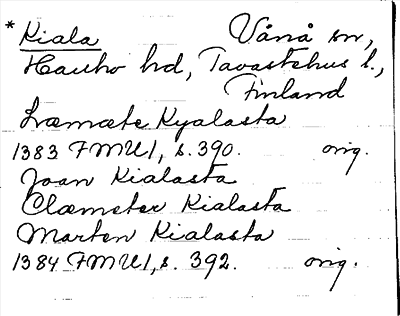 * Kiala Vånå sn,
Hauho hd, Tavastehus l.,
Finland
Læmæte Kyalasta
1383 FMU1, s. 390. orig.
Joan Kialasta
Clæmeter Kialasta
Marten Kialasta
1384 FMU1, s. 392. orig.